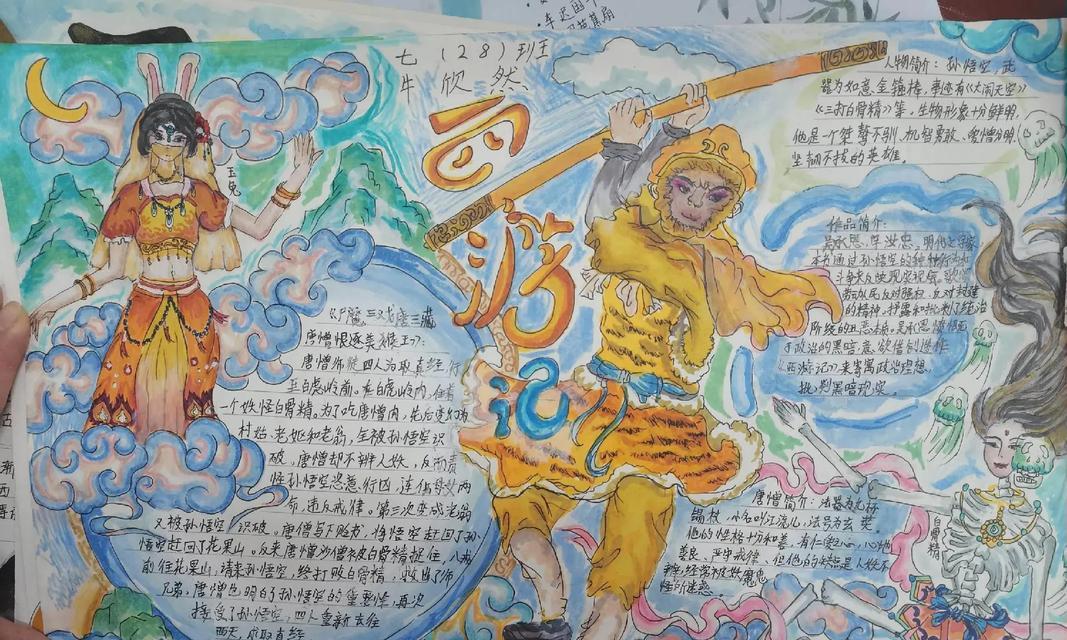 七（28）班
牛欣然
西
游
记
玉兔
人物简介：孙悟空，武
器为如意金箍棒，事迹有《大闹天空》
《三打白骨精》等，生物形象十分鲜明，
他是一个桀骜不驯、机智勇敢、爱憎分明，
坚韧不拔的英雄。
作品简介：
吴承恩，字汝忠，明代
本书通过孙悟空的种种行为和
斗争来反映现实社会，歌颂
劳动人民反对强权、反对封建
的精神，揭露和批判了统治
阶级的丑恶本质。吴承恩
于政治的黑暗，意欲借创作
《西游记》来寄寓政治理想，
批判黑暗现实。
《尸魔三戏唐三藏
唐僧恨逐美猴王》：
唐僧师徒四人为取真经行
至白虎岭前。在白虎岭内，住着
一个妖怪白骨精。为了吃唐僧肉，先后变幻为
村姑、老妪和老翁，全被孙悟空识
破。唐僧却不辨人妖，反而责
怪孙悟空恣意行凶，连伤母女两
命，违反戒律。第三次变成老翁
又被孙悟空识破。唐僧写下贬书，将孙悟空赶回了孙
悟空赶回了花果山。后来唐僧沙僧被白骨精捉住，八戒
前往花果山，请来孙悟空，终打败白骨精，救出了师
兄弟，唐僧也明白了孙悟空的重要性，再次
接受了孙悟空，四人重新去往
西天，求取真经
唐僧简介：法器为九环
锡杖，小名叫江流儿，法号为玄奘。
他的性格十分和善，有仁爱之心，心地
善良，严守戒律，但他的缺点是人妖不
辨，经常被妖魔鬼
怪所迷惑。
白骨精